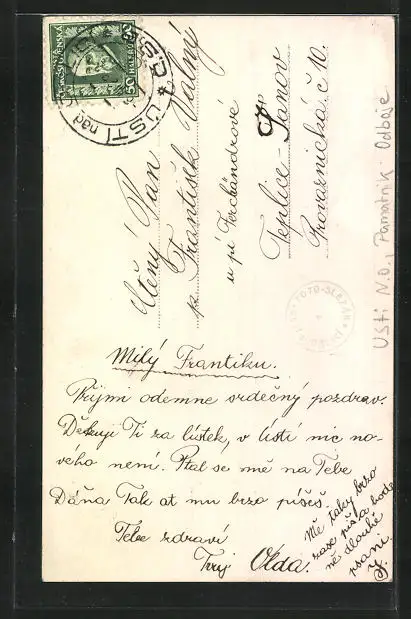 ČESKOSLOVENSKÁ
50 HALÉŘŮ
ÚSTÍ nad
Č.S.R.
Ctěný Pan
p. František Valný
u pí Ferchändrové
Teplice-Šanov
Provaznická. č 10.
Ústí N.O., Pamatník Odboje
FOTO-SLEZÁK
Milý Frantíku.
Přijmi odemne srdečný pozdrav.
Děkuji Ti za lístek, v Ústí nic no-
vého není. Ptal se mě na Tebe
Dáňa Tak at mu brzo píšeš.
Tebe zdraví
Tvůj Olda.
Mě taky brzo
zase piš a hod-
ně dlouhé
psaní.